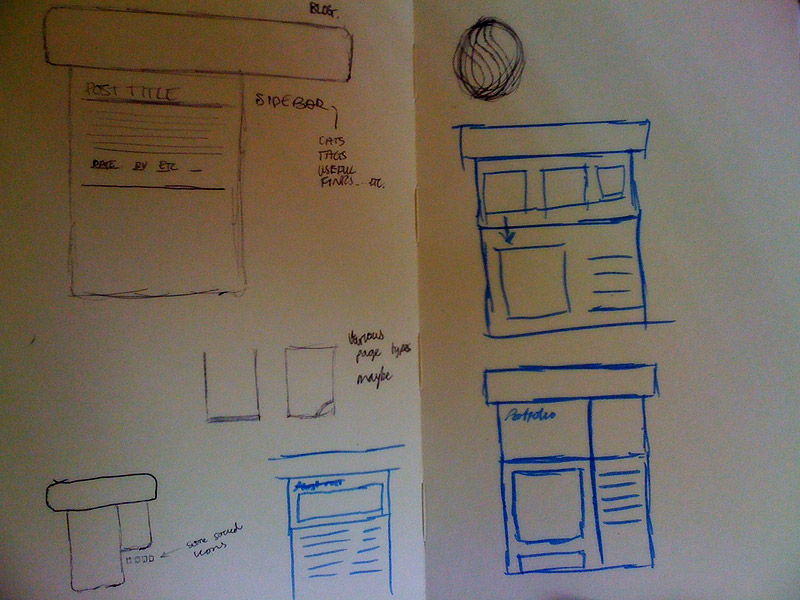 BLOG.
POST TITLE
DATE BY ETC
SIDEBAR
CATS
TAGS
USEFUL
LINKS... ETC.
Various
page types
maybe
some social
icons
Portfolio